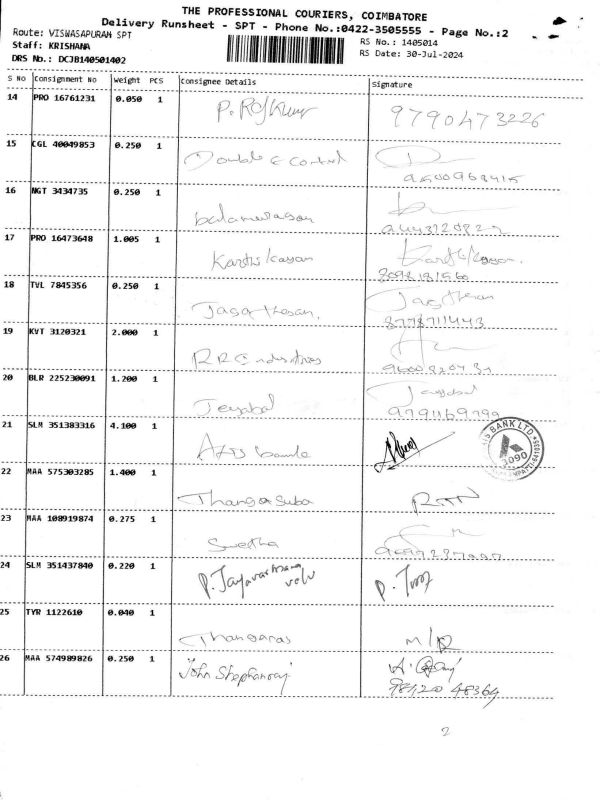 THE PROFESSIONAL COURIERS, COIMBATORE
Delivery Runsheet - SPT - Phone No.:0422-3505555 - Page No.:2
Route: VISWASAPURAM SPT
RS No.: 1405014
Staff: KRISHANA
RS Date: 30-Jul-2024
DRS No.: DCJB140501402
S No Consignment No Weight PCS Consignee Details Signature
14 PRO 16761231 0.050 1 P. Rajkumar 9790473226
15 CGL 40049853 0.250 1 Double E Control
16 NGT 3434735 0.250 1 balamurugan
17 PRO 16473648 1.005 1 Karthikayan Karthikayan.
18 TVL 7845356 0.250 1 Jagatheesan. Jagatheesan
8778711443
19 KVT 3120321 2.000 1 RR Industries
20 BLR 225230091 1.200 1 Jeyabal Jeyabal
9791169799
21 SLM 351383316 4.100 1 Axis bank
BANK LTD
3090
22 MAA 575303285 1.400 1 Thanga Suba
23 MAA 108919874 0.275 1 Swetha
24 SLM 351437840 0.220 1 P.
25 TYR 1122610 0.040 1 Thangaras M/R
26 MAA 574989826 0.250 1 John Shephanraj
98420 48364
2